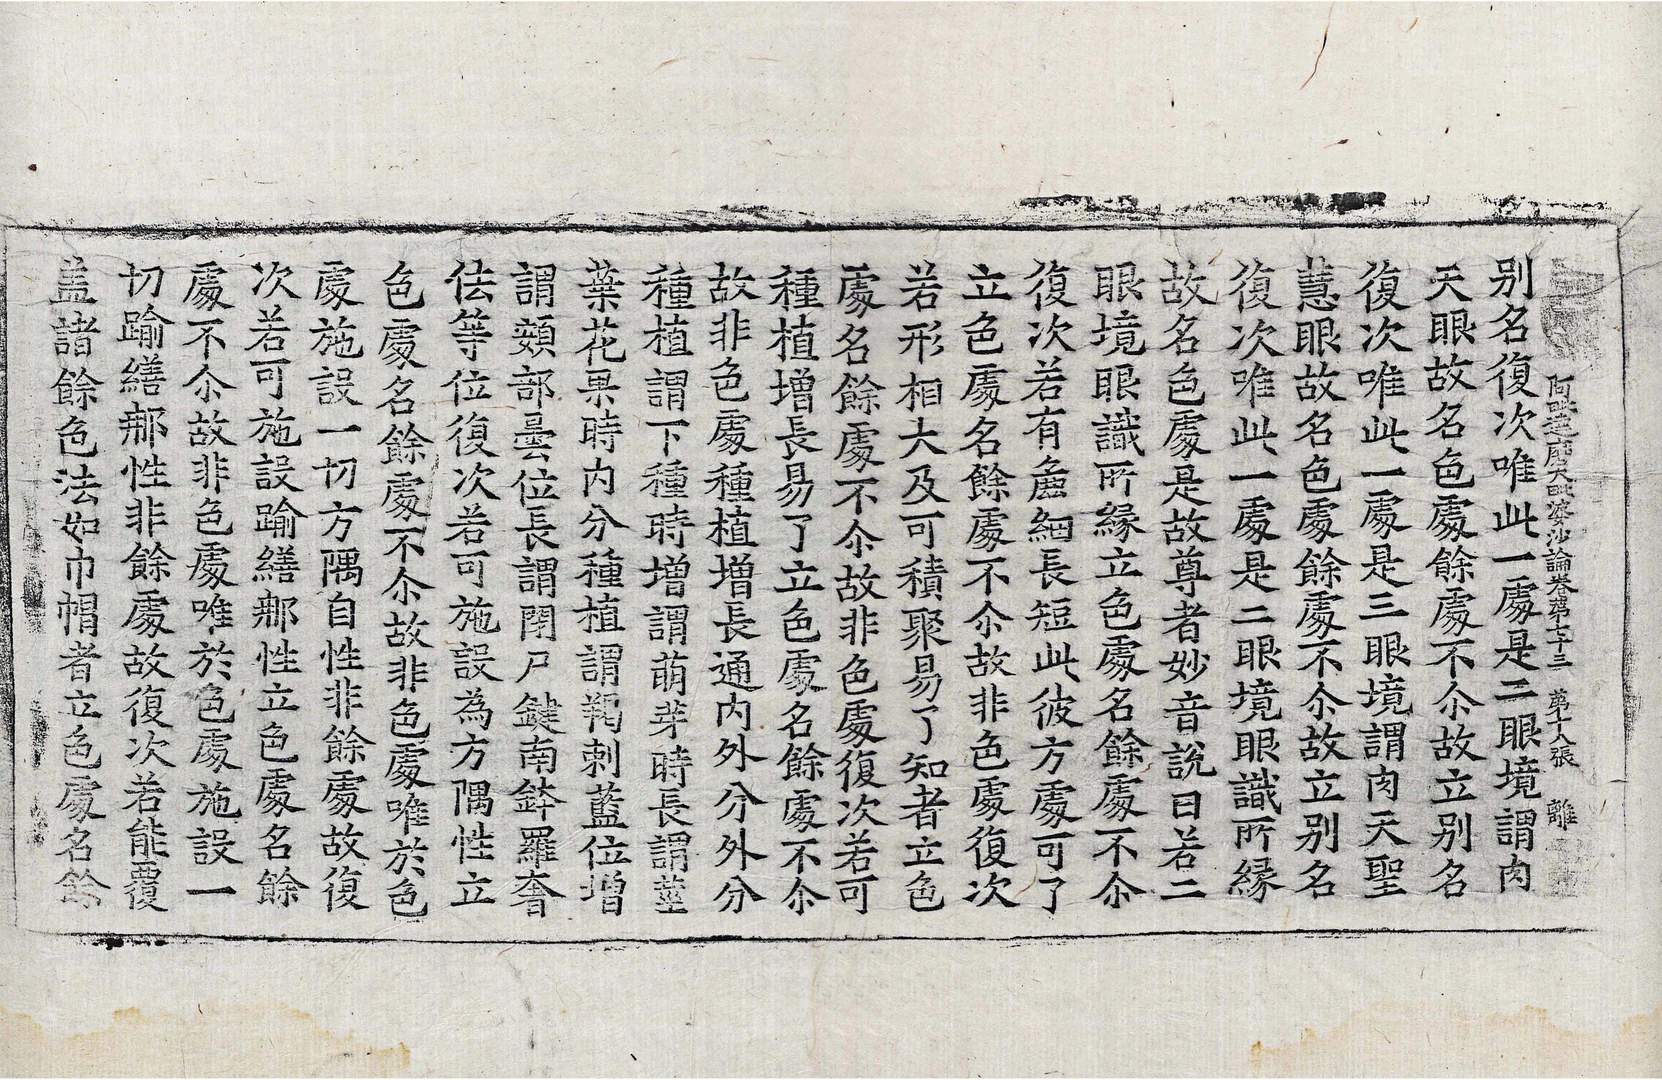 阿毗達磨大毗婆沙論卷第七十三 第十八張 離
别名復次唯此一處是二眼境謂肉
天眼故名色處餘處不尒故立别名
復次唯此一處是三眼境謂肉天聖
慧眼故名色處餘處不尒故立别名
復次唯此一處是二眼境眼識所縁
故名色處是故尊者妙音說曰若二
眼境眼識所縁立色處名餘處不尒
復次若有麁細長短此彼方處可了
立色處名餘處不尒故非色處復次
若形相大及可積聚易了知者立色
處名餘處不尒故非色處復次若可
種植增長易了立色處名餘處不尒
故非色處種植增長通內外分外分
種植謂下種時增謂萌芽時長謂莖
葉花果時內分種植謂羯剌藍位增
謂頞部曇位長謂閉尸鍵南鉢羅奢
佉等位復次若可施設為方隅性立
色處名餘處不尒故非色處唯於色
處施設一切方隅自性非餘處故復
次若可施設踰繕那性立色處名餘
處不尒故非色處唯於色處施設一
切踰繕那性非餘處故復次若能覆
盖諸餘色法如巾帽者立色處名餘